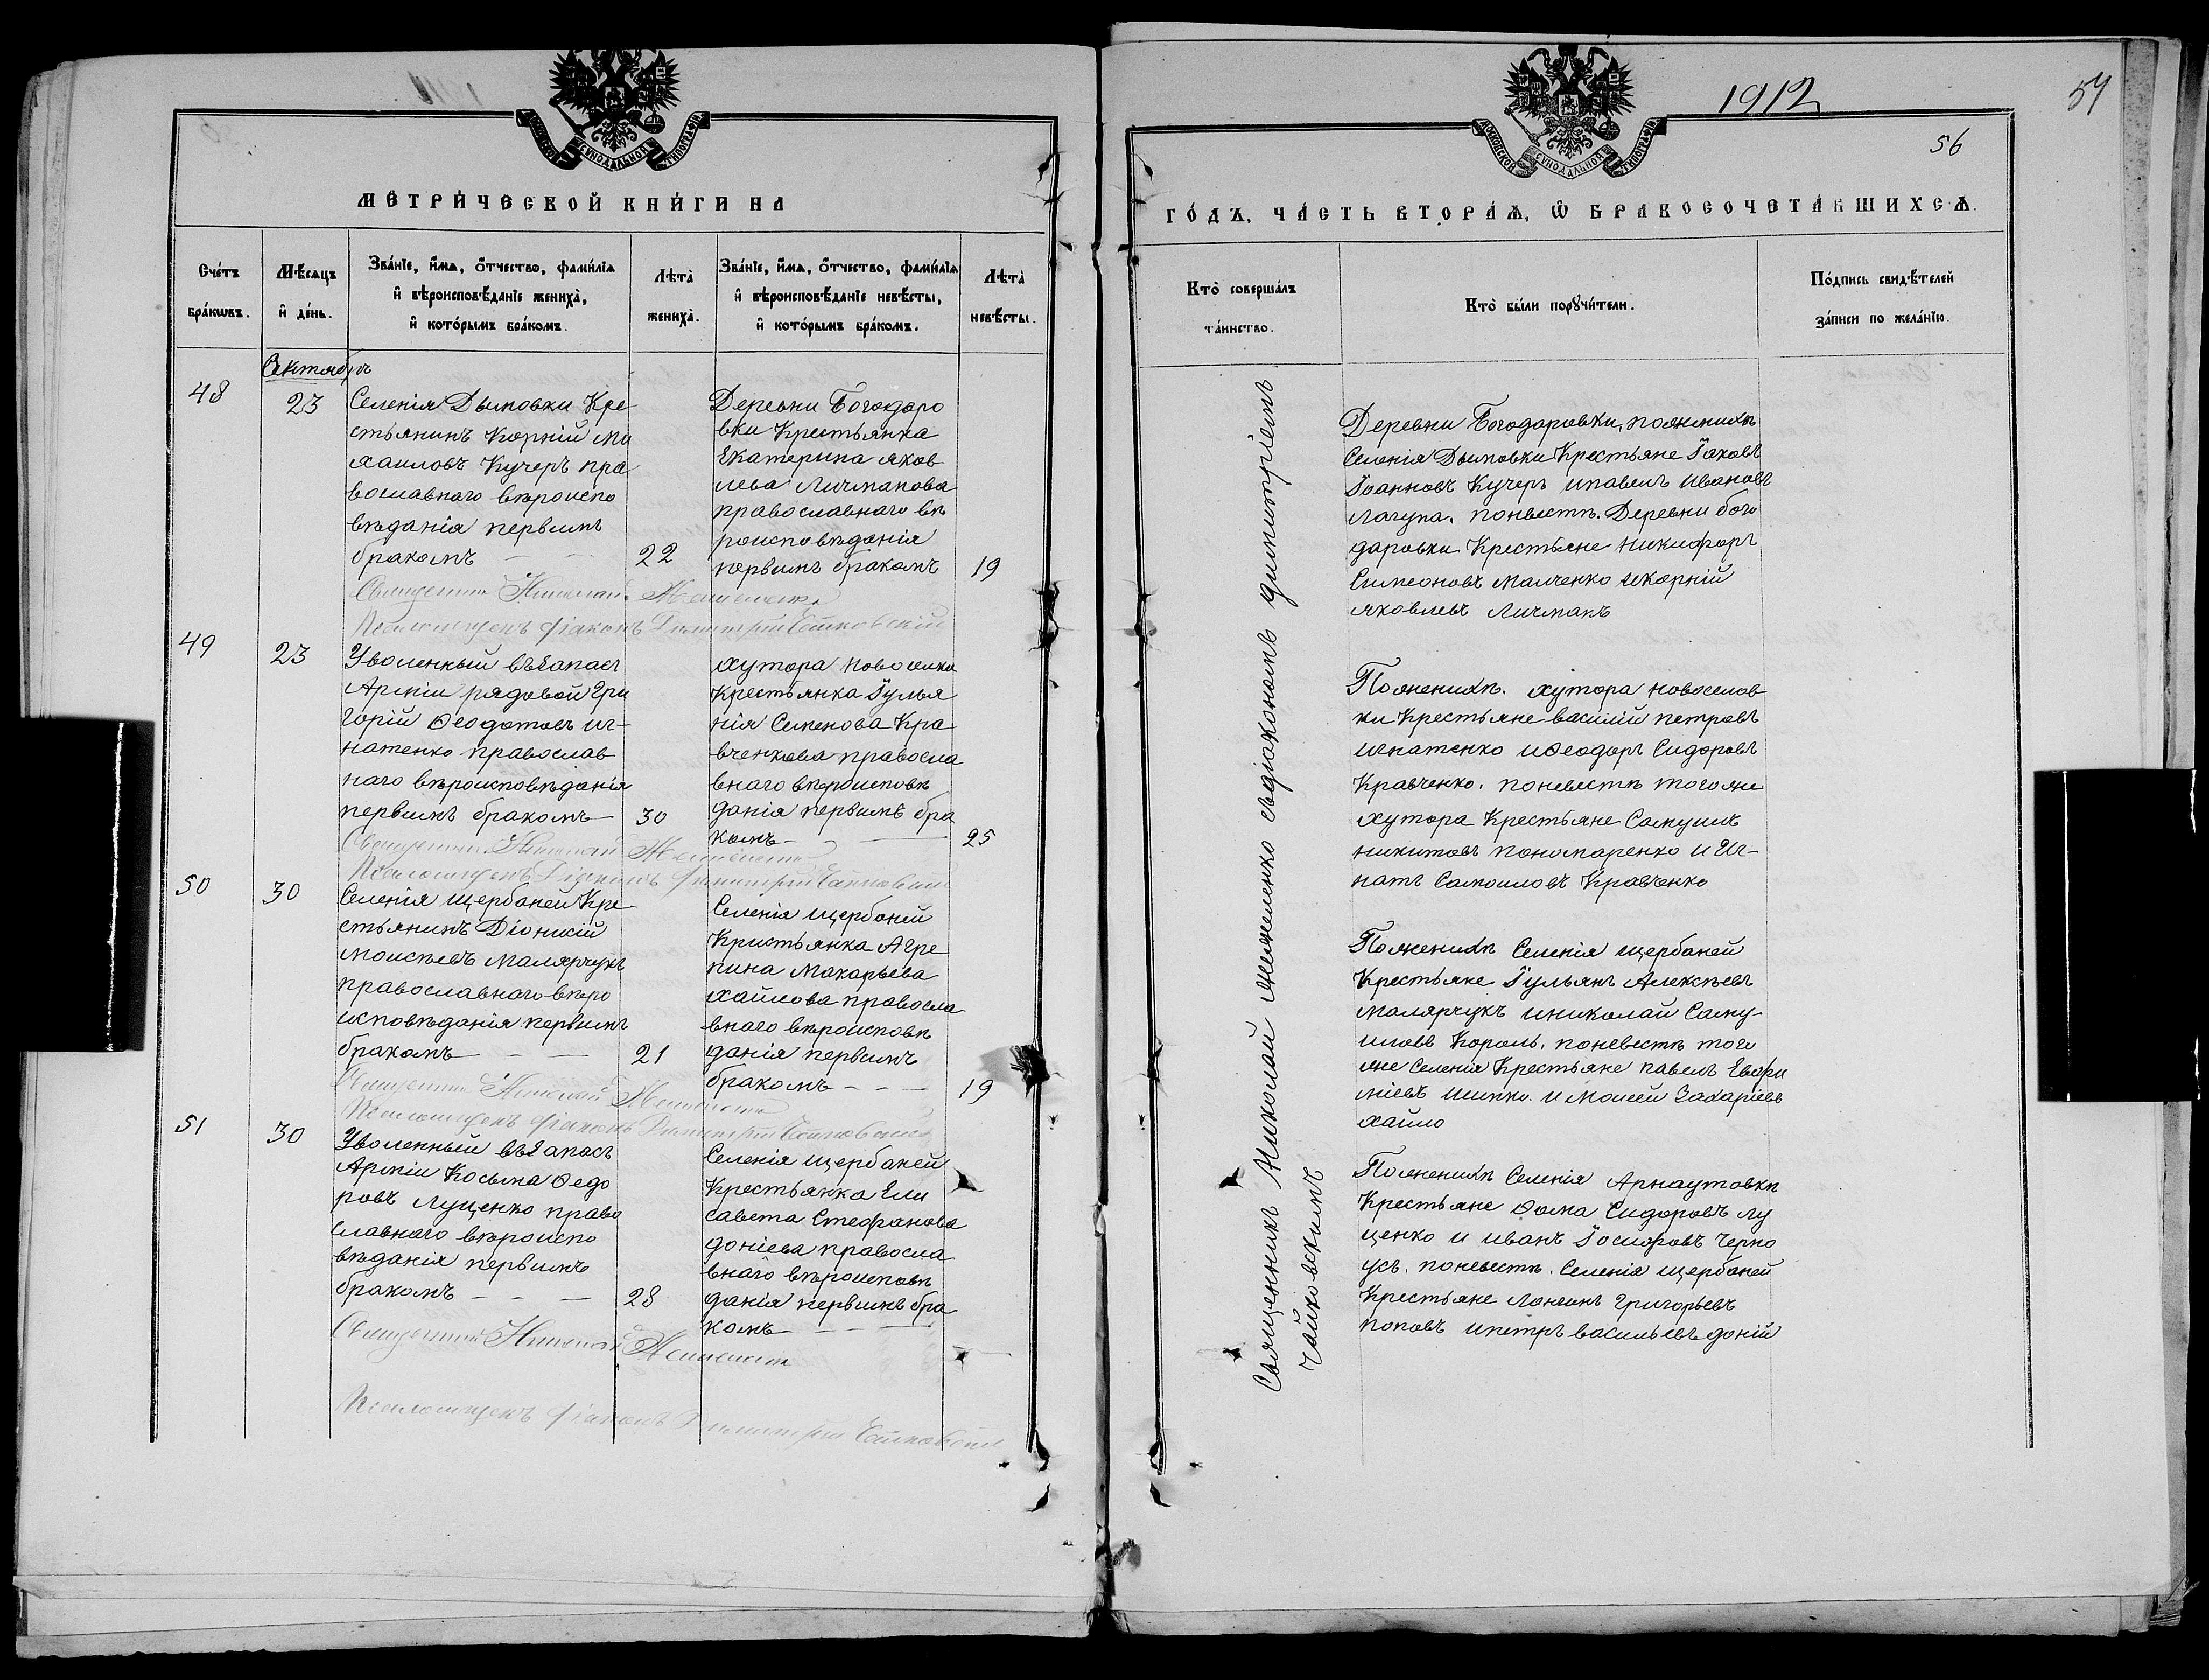 МОСКОВСКОЙ СѴНОДАЛЬНОЙ ТИПОГРАФІИ
МЕТРИ́ЧЕСКОЙ КНИ́ГИ НА
Сче́тъ бра́кѡвъ.
Мѣ́сяцъ и҆ де́нь.
Зва́нїе, и҆́мѧ, ѻ҆́тчество, фами́лїѧ
и҆ вѣроисповѣ́данїе женихà,
и҆ кото́рымъ бра́комъ.
Лѣтà
женихà.
Зва́нїе, и҆́мѧ, ѻ҆́тчество, фами́лїѧ
и҆ вѣроисповѣ́данїе невѣ́сты,
и҆ кото́рымъ бра́комъ.
Лѣтà
невѣ́сты.
Октябрь
48
23
Селенія Дымовки Кре
стьянинъ Корній Ми
хаиловъ Кучеръ пра
вославнаго вѣроиспо
вѣданія первымъ
бракомъ
22
Деревни Богодаро
вки Крестьянка
Екатерина Яков
лева Личманова
православнаго вѣ
роисповѣданія
первымъ бракомъ
19
Священникъ Николай
Псаломщикъ діаконъ Димитрій Чайковскій
49
23
Уволенный въ запасъ
Арміи рядовой Гри
горій Ѳеодотовъ Иг-
натенко православ
наго вѣроисповѣданія
первымъ бракомъ
30
хутора Новоселки
Крестьянка Іулья
нія Семенова Кра
вченкова правосла
внаго вѣроисповѣ
данія первымъ бра
комъ
25
Священникъ Николай
Псаломщикъ Діаконъ Димитрій Чайковскій
50
30
Селенія Щербаней Кре
стьянинъ Діонисій
Моисѣевъ Малярчукъ
православнаго вѣро
исповѣданія первымъ
бракомъ
21
Селенія Щербаней
Кристьянка Агре
пина Макарьева
Хайлова правосла
внаго вѣроисповѣ
данія первымъ
бракомъ
19
Священникъ Николай
Псаломщикъ діаконъ Димитрій Чайковскій
51
30
Уволенный въ запасъ
Арміи Косьма Ѳедо
ровъ Луценко право
славнаго вѣроиспо
вѣданія первымъ
бракомъ
28
Селенія Щербаней
Крестьянка Ели
савета Стефанова
Доніева правосла
внаго вѣроисповѣ
данія первымъ бра
комъ
Священникъ Николай
Псаломщикъ діаконъ Димитрій Чайковскій
1912
57
56
МОСКОВСКОЙ СѴНОДАЛЬНОЙ ТИПОГРАФІИ
ГО́ДЪ, ЧА́СТЬ ВТОРА́Ѧ, Ѽ БРАКОСОЧЕТА́ВШИХСѦ.
Кто̀ соверша́лъ
та́инство.
Кто̀ бы́ли порꙋчи́тели.
По́дпись свидѣ́телей
за́писи по жела́нїю.
Священникъ Николай съ діакономъ Димитріемъ
Чайковскимъ
Деревни Богодаровки, по женихѣ
Селенія Дымовки Крестьяне Іаковъ
Іоанновъ Кучеръ и Павелъ Ивановъ
Лагупа. по невѣстѣ. Деревни Бого
даровки Крестьяне Никифоръ
Симеоновъ Малченко и Корній
Яковлевъ Личманъ
По женихѣ. хутора Новоселов
ки Крестьяне Василій Петровъ
Игнатенко и Ѳеодоръ Сидоровъ
Кравченко. по невѣстѣ того же
хутора Крестьяне Самуилъ
Никитовъ Пономаренко и Иг-
натъ Самоиловъ Кравченко
По женихѣ Селенія Щербаней
Крестьяне Іульянъ Алексѣевъ
Малярчукъ и Николай Саму-
иловъ Король. по невѣстѣ того
же Селенія Крестьяне Павелъ Евфи
міевъ и Моисей Захаріевъ
Хайло
По женихѣ Селенія Арнаутовки
Крестьяне Ѳома Сидоровъ Лу
ценко и Иванъ Іосифовъ Черно
усъ. по невѣстѣ. Селенія Щербаней
Крестьяне Лонгинъ Григорьевъ
Поповъ и Петръ Васильевъ Доній